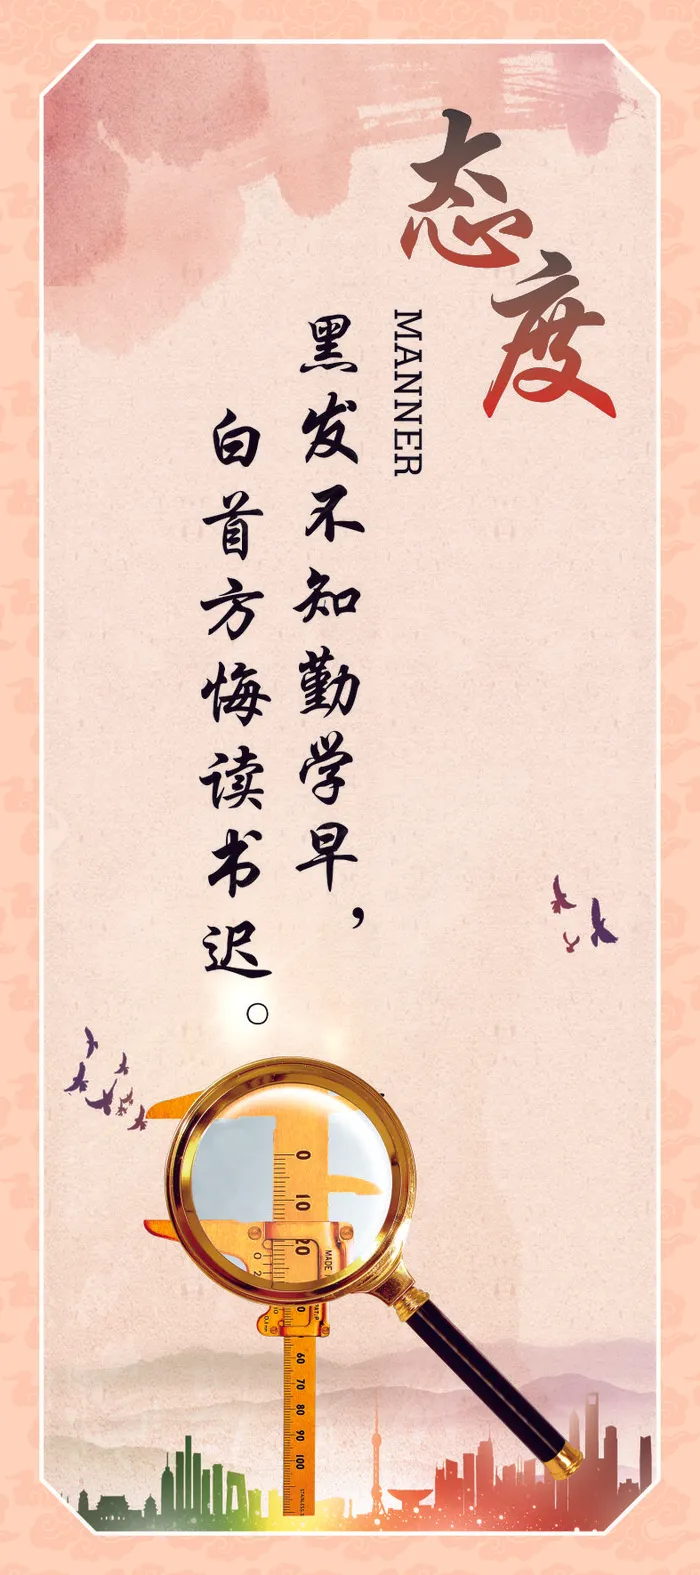 态度
MANNER
黑发不知勤学早，
白首方悔读书迟。
0
10
20
MADE
0
60
70
80
90
100